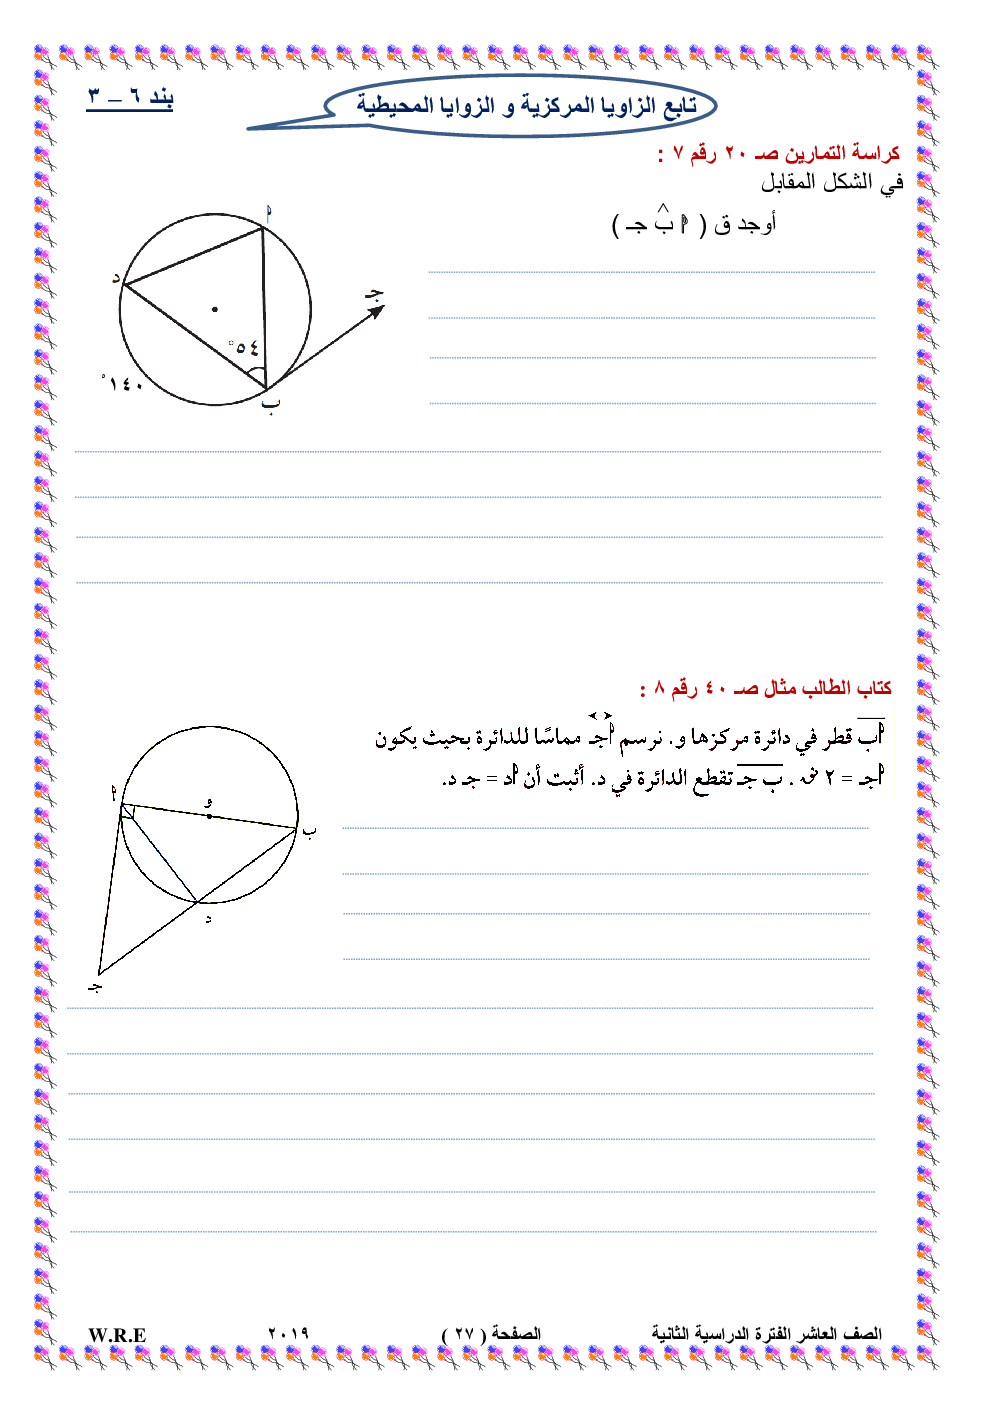 بند ٦ – ٣
تابع الزاويا المركزية و الزوايا المحيطية
كراسة التمارين صـ ٢٠ رقم ٧ :
في الشكل المقابل
أوجد ق ( أ ب^ جـ )
أ
د
جـ
٥٤°
١٤٠°
ب
كتاب الطالب مثال صـ ٤٠ رقم ٨ :
أب قطر في دائرة مركزها و. نرسم أجـ مماسًا للدائرة بحيث يكون
أجـ = ٢ نق . ب جـ تقطع الدائرة في د. أثبت أن أد = جـ د.
أ
و
ب
د
جـ
الصف العاشر الفترة الدراسية الثانية الصفحة ( ٢٧ ) ٢٠١٩ W.R.E